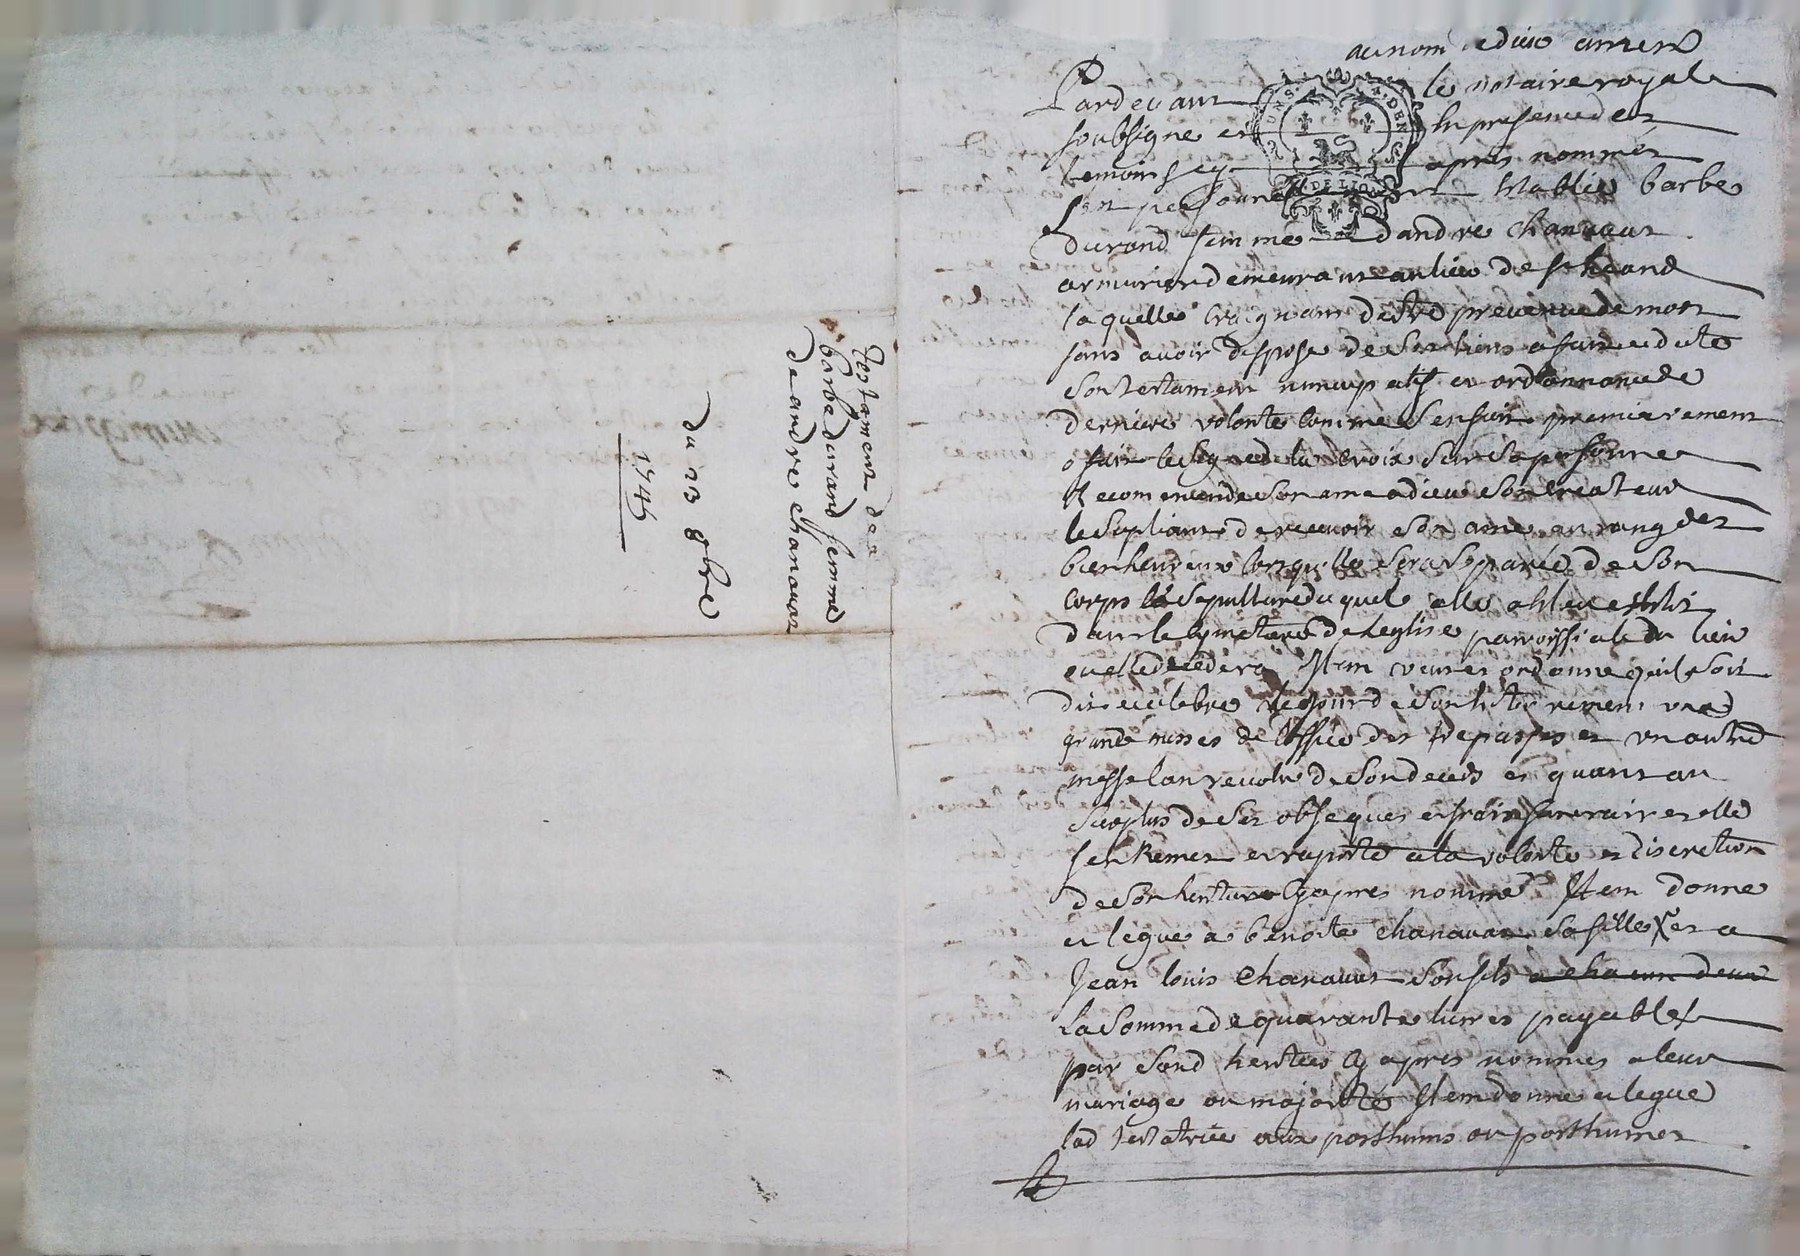 testament de
barbe durand femme
de andre Chanavat
du 23 8bre
1745
au nom de dieu amen
Pardevant le notaire royal
soubsigne et En presence des
temoins cy apres nommes
fut en personne Establie barbe
durand femme dandre Chanavat
armurier demeurant au lieu de st heand
laquelle craignant destre prevenue de mort
sans avoir dispose de ses biens a fait et dicte
son testament nuncupatif et ordonnance de
derniere volonte comme sensuit premierement
a fait le signe de la croix sur sa personne
Recommende son ame a dieu son createur
le supliant de recevoir son ame au rang des
bienheureux lorsquelle sera separee de son
corps la sepulture duquel elle a esleu
dans le cymetiere de leglise parroissiale du lieu
ou elle decedera Item veut et ordonne quil soit
dit et celebre le jour de son enterrement une
grande messe de loffice des trepasses et un autre
messe lan revolu de son deceds et quant au
surplus de ses obseques et frais funeraires elle
sen Remet et raporte a la volonte et discretion
de son heritier cy apres nomme Item donne
et legue a benoite Chanavat sa fille X et a
Jean louis Chanavat son fils a chacun deux
La somme de quarante livres payable
par sond heritier cy apres nomme a leur
mariage ou majorité Item donne et legue
lad testatrice aux posthumes ou posthumes